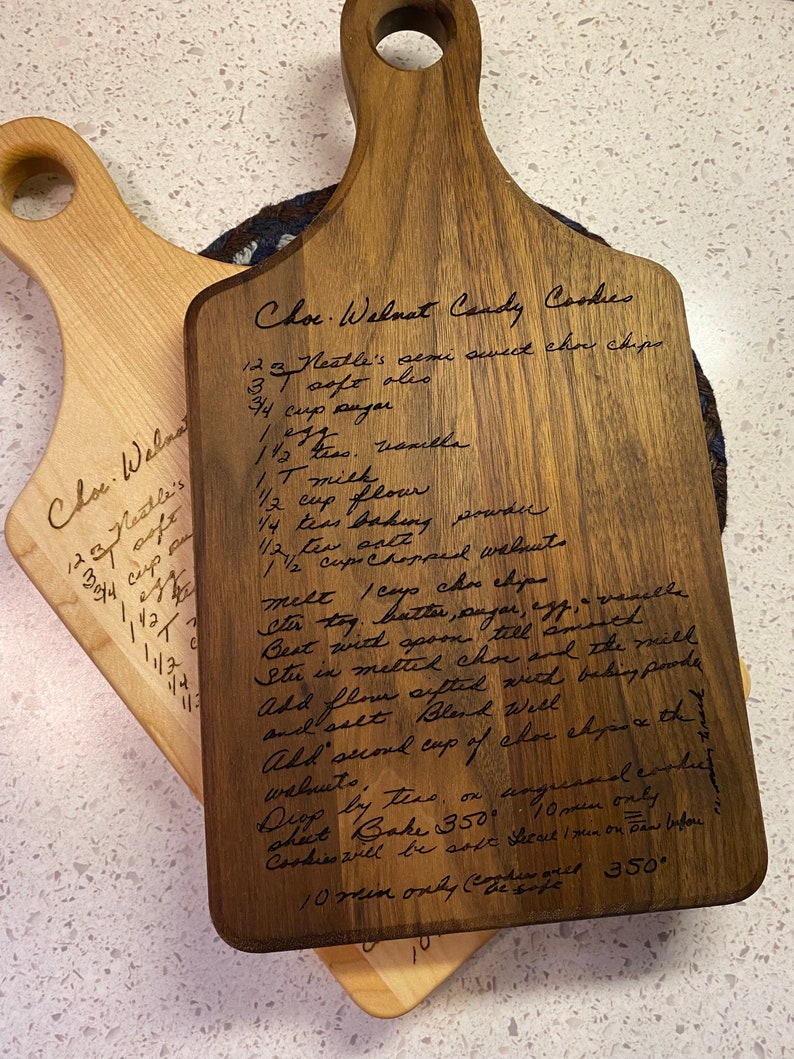 Choc. Walnut Candy Cookies
12 3 Nestle's semi sweet choc chips
3 T soft oleo
3/4 cup sugar
1 egg
1 1/2 teas. vanilla
1 T milk
1/2 cup flour
1/4 teas baking powder
1/2 tea salt
1 1/2 cups chopped walnuts
melt 1 cup choc chips
Stir tog. butter, sugar, egg, & vanilla
Beat with spoon till smooth
Stir in melted choc and the milk
Add flour sifted with baking powder
and salt Blend Well
Add second cup of choc chips & the
walnuts.
Drop by teas. on ungreased cookie
sheet Bake 350° 10 min only
Cookies will be soft Let set 1 min on pan before
removing to rack
10 min only (cookies will be soft 350°
Choc. Walnut
12 3 Nestle's
3 T soft
3/4 cup su
1 egg
1 1/2 te
1 T
1/2
1/4
1/2
10